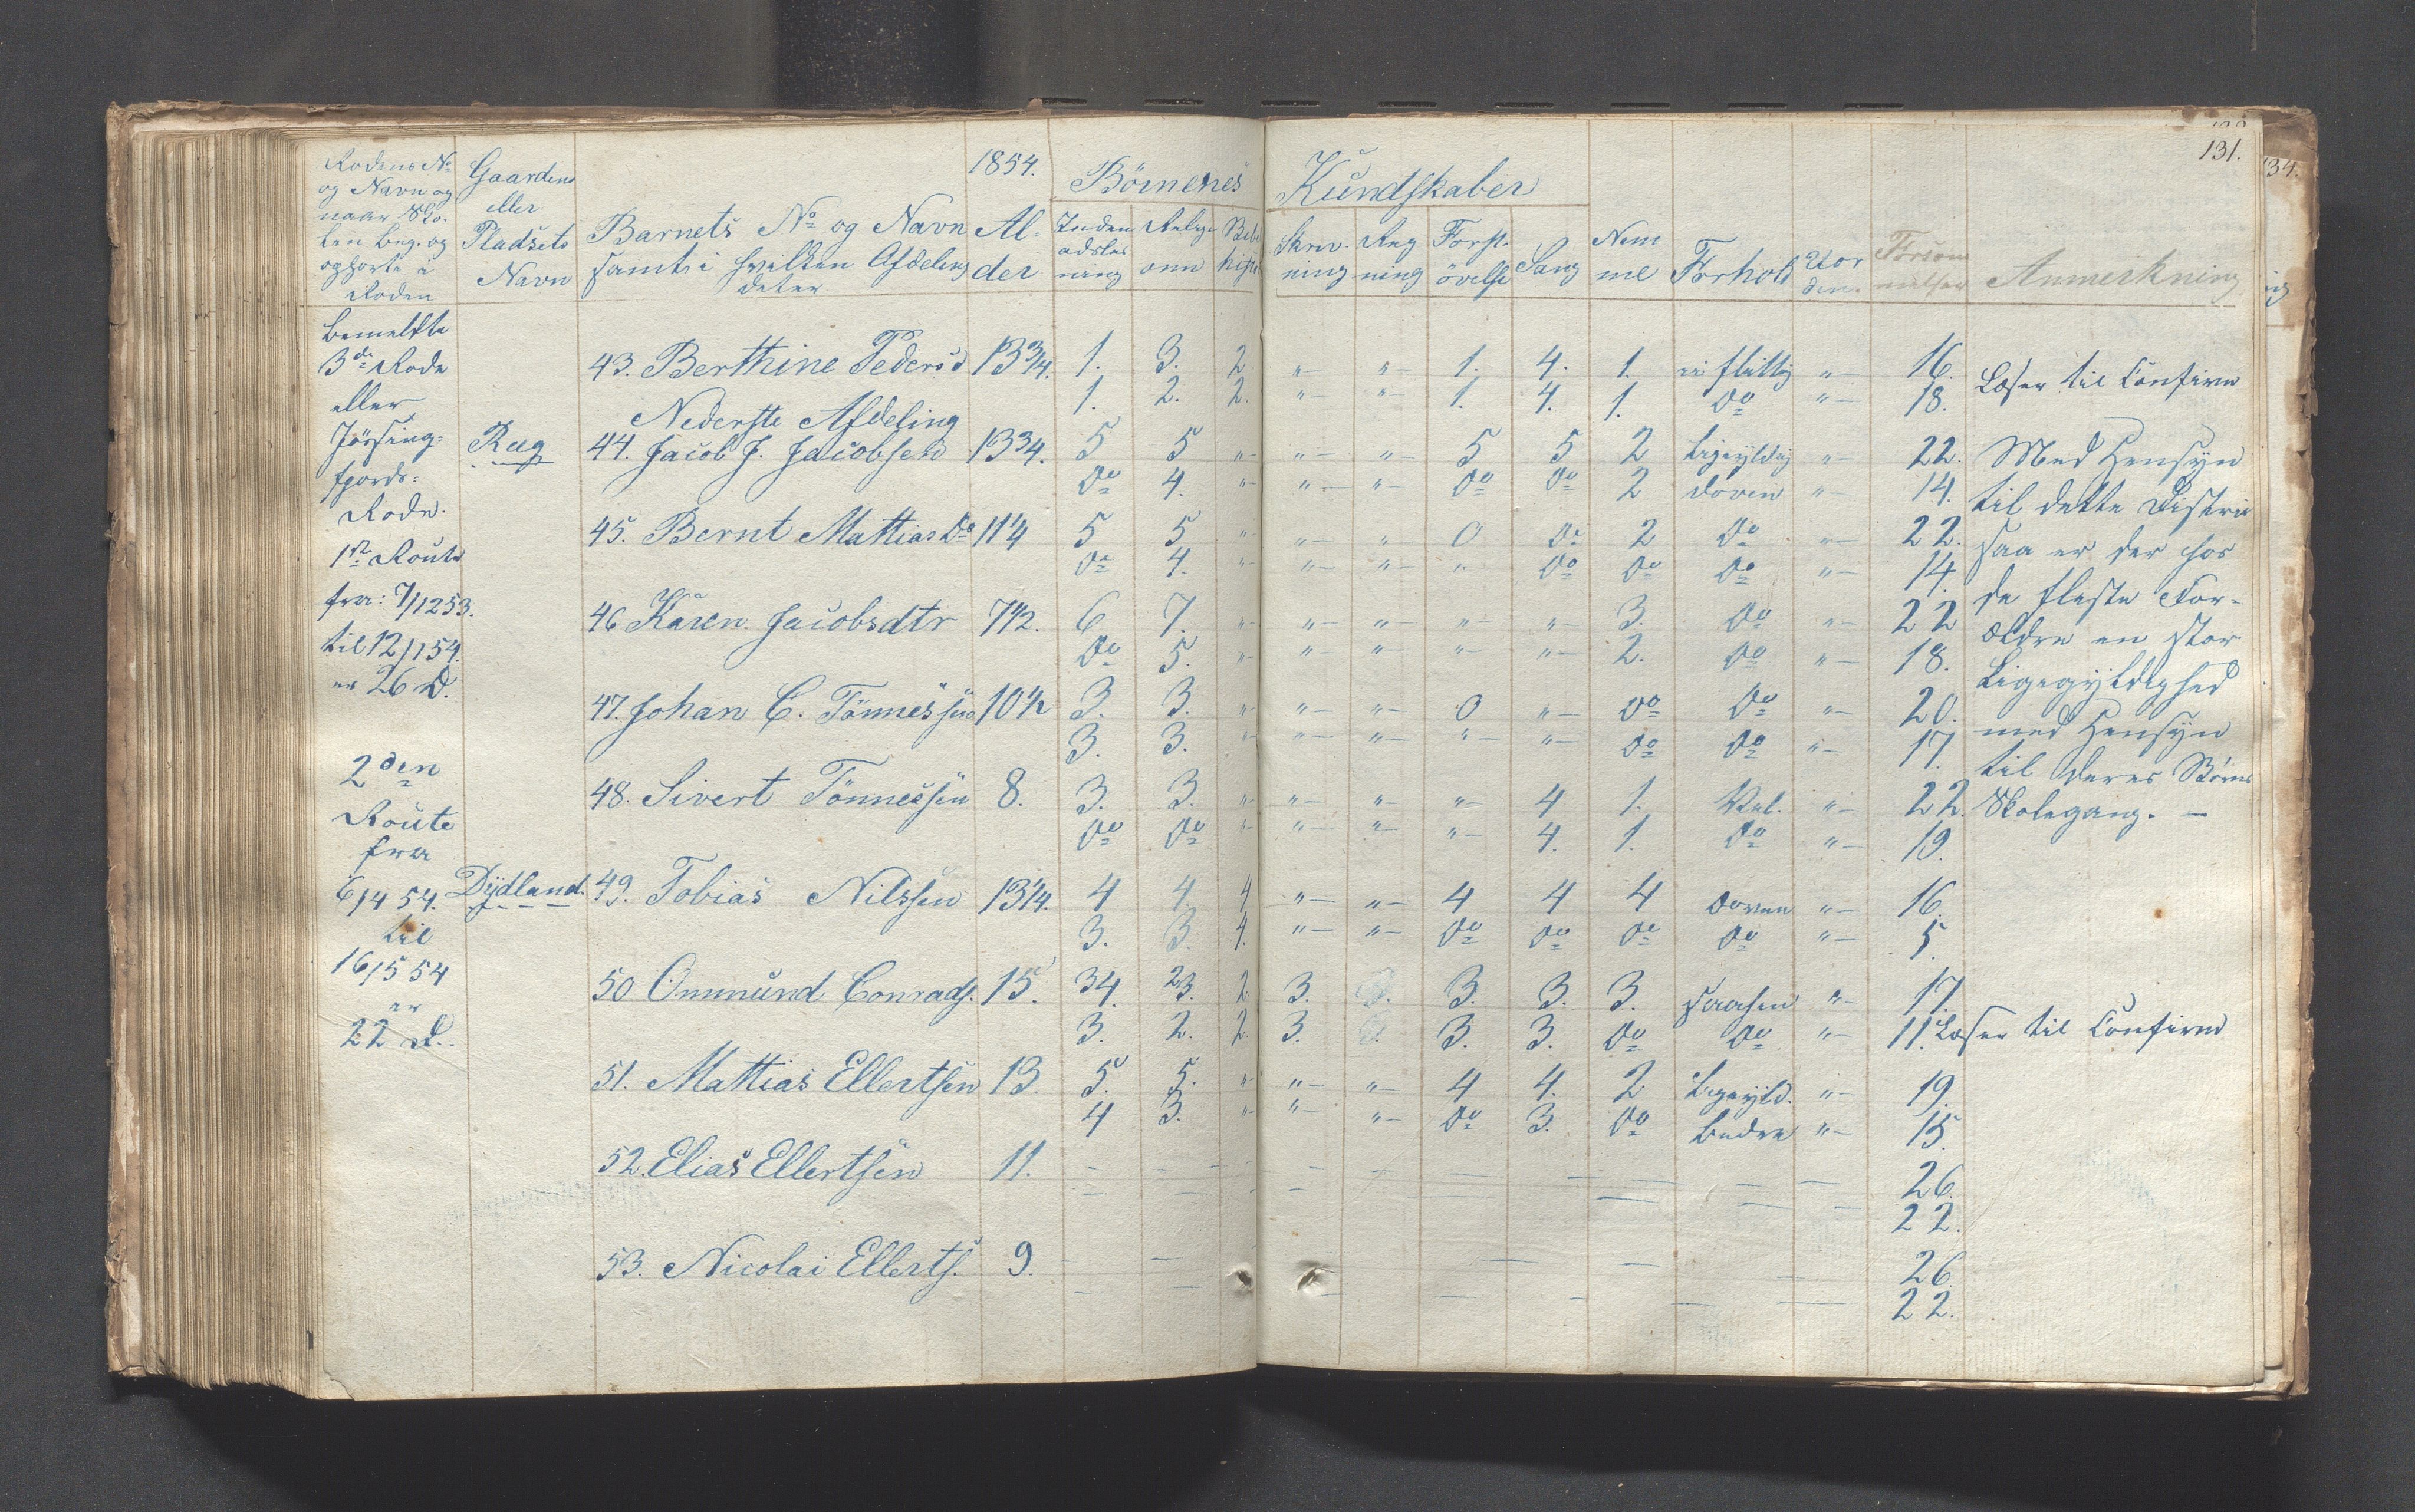 1854.
131.
134.
Rodens No
og Navn og
naar Sko-
len beg. og
ophørte i
Roden
Gaardens
eller
Pladsets
Navn
Barnets No og Navn
samt i hvilken Afdeling
det er
Al-
der
Børnenes Kundskaber
Inden-
adslæs
ning
Religi-
onn
Bibel
hist
Skriv-
ning
Reg
ning
Forst.
övelse
Sang
Nem
me
Forhold
Uor
den
Forsöm
melser
Anmerkning
bemeldte
3de Rode
eller
Jössing-
fjords-
Rode.
1ste Route
fra: 7/12 53.
til 12/1 54.
er 26 D.
2den
Route
fra
6/4 54.
til
16/5 54
er
22 D.
43. Berthine Pedersd 13 3/4. 1. 3. 2 " " 1. 4. 1. flittig " 16. Læser til Confirm
1. 2. 2. " " 1. 4. 1. Do " 18.
Nederste Afdeling
Ræg 44. Jacob J. Jacobsen 13 3/4. 5 5 " " " 5 5 2 Ligegyldig " 22. Med Hensyn
Do 4. " " " Do Do 2 doven " 14. til dette District
45. Bernt Mattias Do 11 1/4 5 5 " " " 0 Do 2 Do " 22. saa er der hos
Do 4. " " " " Do Do Do " 14. de fleste For-
46 Karen Jacobsdtr 7 1/2. 6 7. " " " " " 3. Do " 22 ældre en stor
Do 5. " " " " " 2. Do " 18. Ligegyldighed
47. Johan C. Tönnessen 10 1/2 3. 3. " " " 0 " Do Do " 20. med Hensyn
3. 3. " " " " " Do Do " 17. til deres Börns
48. Sivert Tönnessen 8. 3. 3. " " " " 4 1. Vel. " 22. Skolegang. —
Do Do " " " " 4. 1. Do " 19.
Dydland. 49. Tobias Nilssen 13 1/4. 4 4. 4 " " 4 4 4 doven " 16.
3. 3. 4. " " Do Do Do Do " 5.
50 Ommund Conrads. 15. 34. 23. 2 3. 3. 3. 3. saasen " 17.
3. 2. 2. 3. 3. 3. Do Do " 11. Læser til Confirm
51. Mattias Ellertsen 13 5. 5. " " " 4 4. 2 Ligegyld. " 19.
4 3. " " " Do 3. Do bedre " 15.
52. Elias Ellertsen 11. — — — — — — — — — — 26.
— — — — — — — 22.
53. Nicolai Ellerts. 9. — — — — — 26.
— — — — — 22.